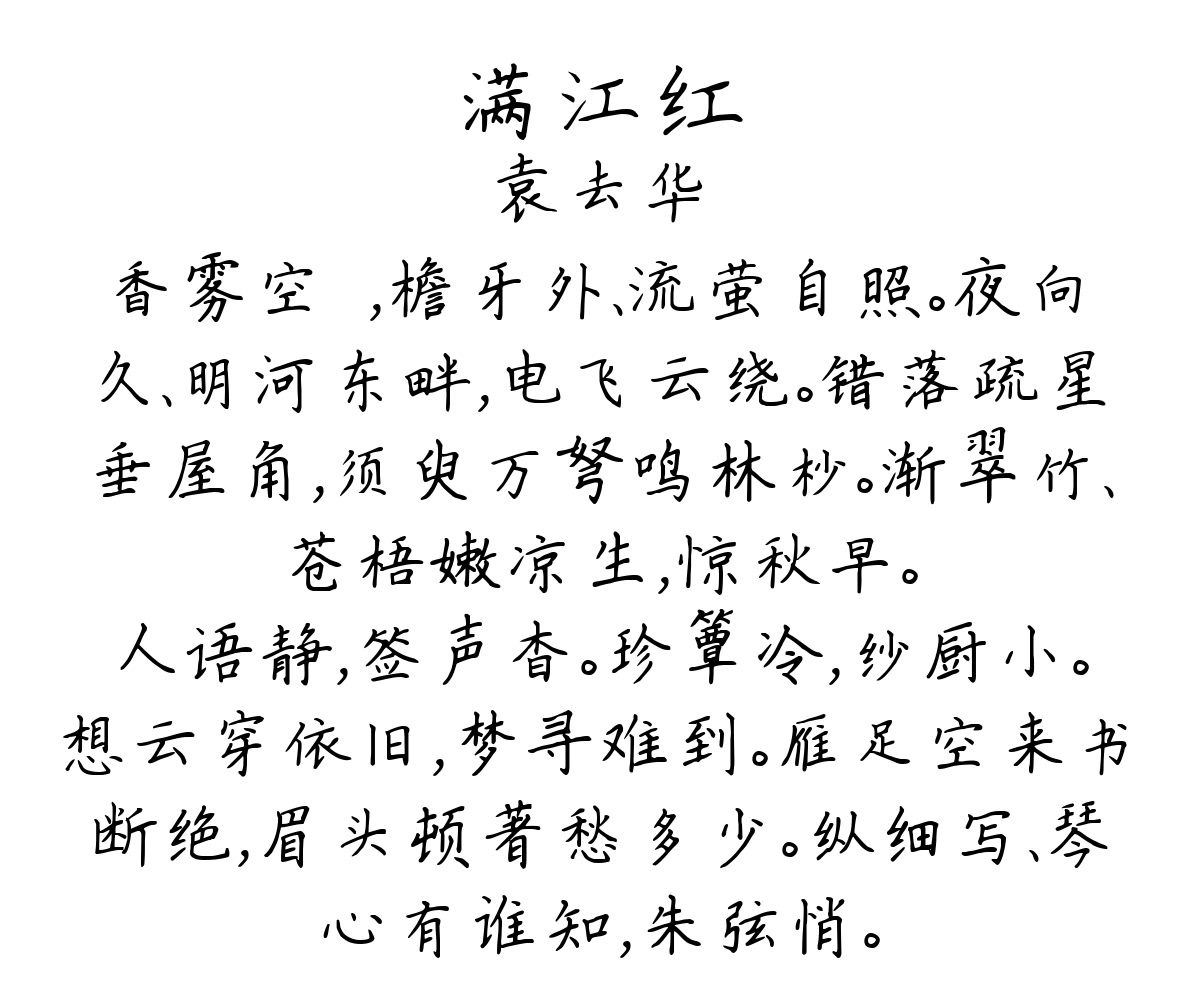 满江红
袁去华
香雾空 ,檐牙外、流萤自照。夜向
久、明河东畔,电飞云绕。错落疏星
垂屋角,须臾万弩鸣林杪。渐翠竹、
苍梧嫩凉生,惊秋早。
人语静,签声杳。珍簟冷,纱厨小。
想云穿依旧,梦寻难到。雁足空来书
断绝,眉头顿著愁多少。纵细写、琴
心有谁知,朱弦悄。